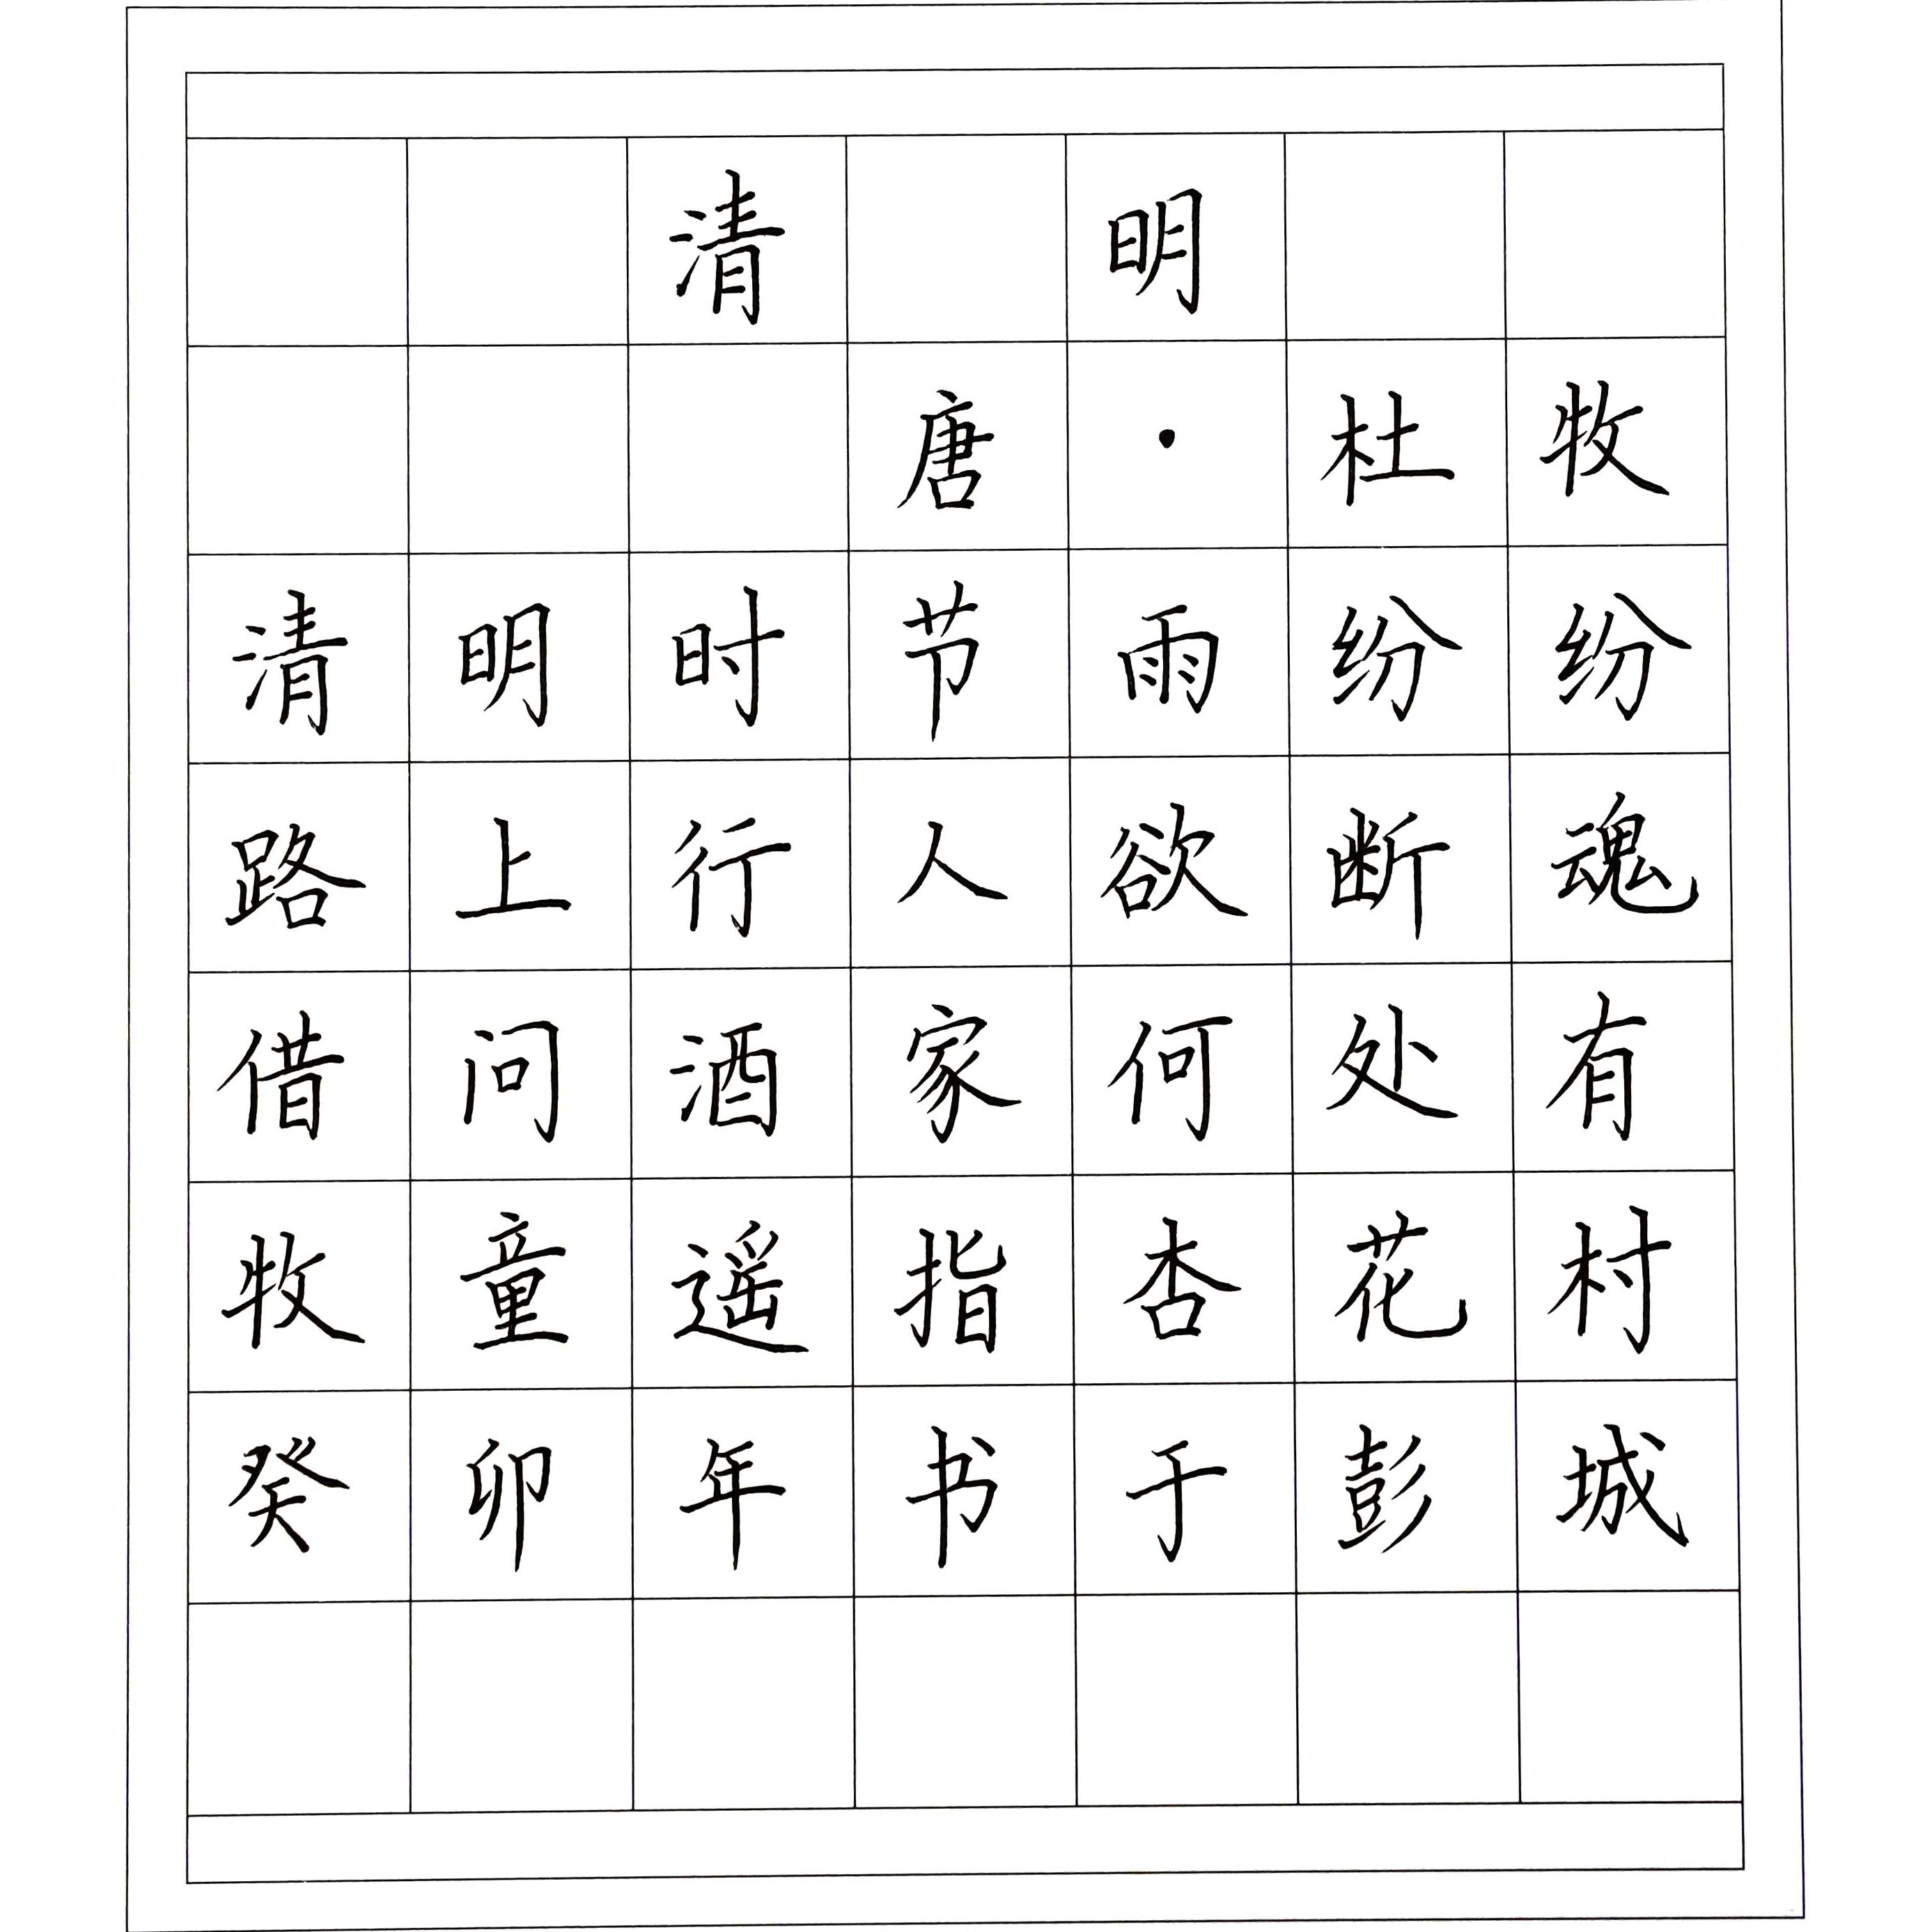 清明
唐·杜牧
清明时节雨纷纷
路上行人欲断魂
借问酒家何处有
牧童遥指杏花村
癸卯年书于彭城